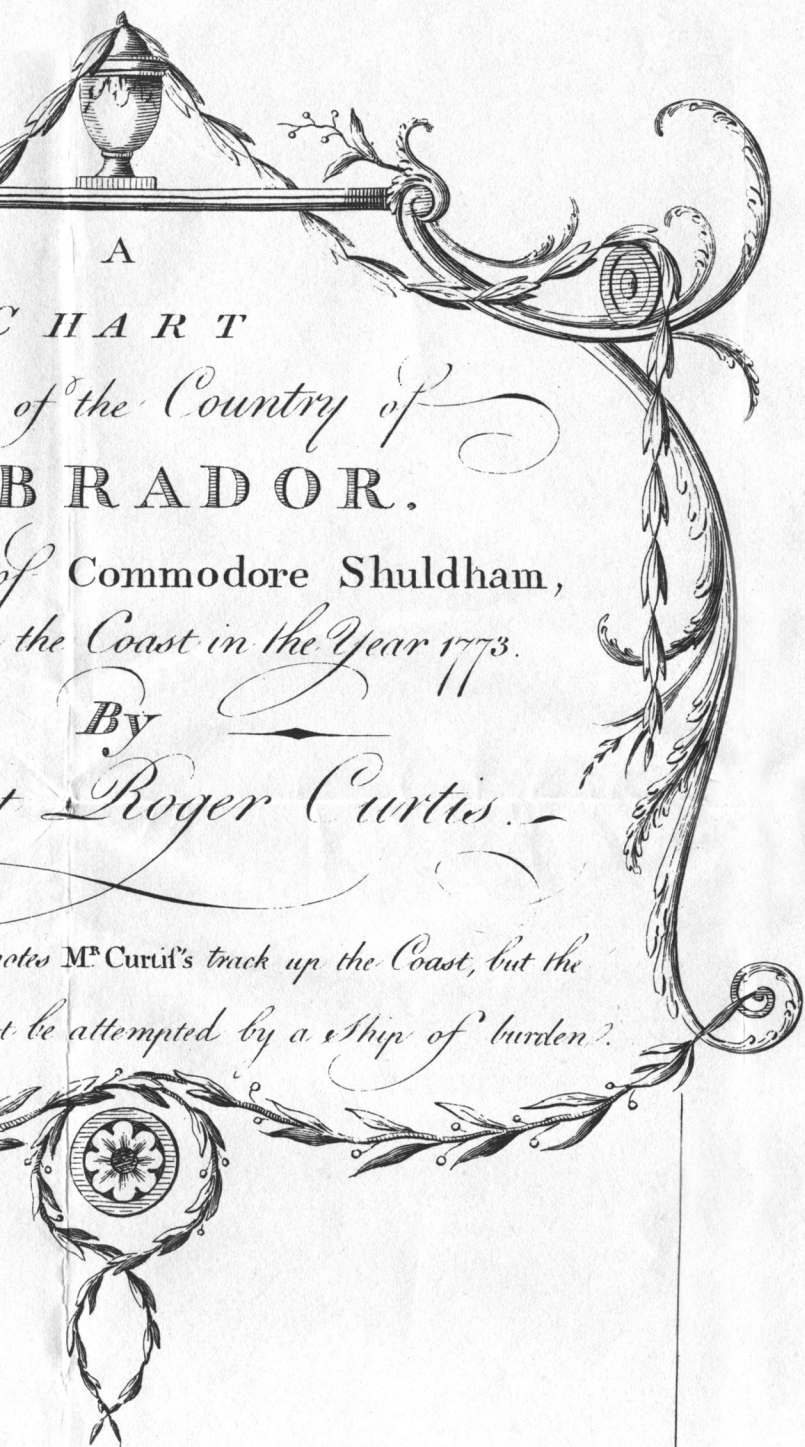 A
CHART
of the Country of
BRADOR.
of Commodore Shuldham,
the Coast in the Year 1773.
By
t Roger Curtis.
notes Mr. Curtiſ's track up the Coast, but the
t be attempted by a Ship of burden.